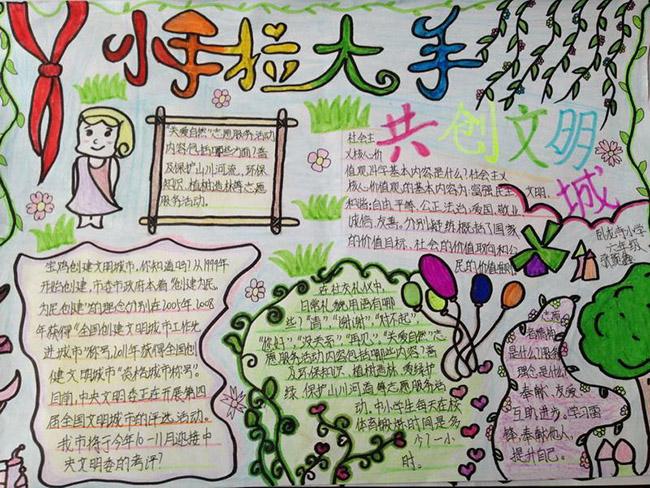 小手拉大手
共创文明城
"关爱自然"志愿服务活动
内容包括哪些方面?普
及保护山川河流、环保
知识、植树造林等志愿
服务活动。
社会主
义核心价
值观科学基本内容是什么?社会主义
核心价值观的基本内容为:富强、民主、文明、
和谐;自由、平等、公正、法治;爱国、敬业、
诚信、友善。分别
国家
的价值目标、社会的价值取向和公
民的价值
卧龙寺小学
六年级
宝鸡创建文明城市,你知道吗?从1999年
开始创建,市委市政府本着"创建为民,
为民创建"的理念分别在2006年、2008
年获得"全国创建文明城市工作先
进城市"称号,2011年获得全国创
建文明城市"资格城市称号"
目前,中央文明委正在开展第四
届全国文明城市的评选活动。
我市将于今年6-11月迎接中
央文明委的考评?
在社交礼仪中,
日常礼貌用语有哪
些?"请"、"谢谢"、"对不起"、
"你好"、"没关系"、"再见"、"关爱自然"志
愿服务活动内容包括哪些内容?普
及环保知识、植树造林、爱绿护
绿、保护山川河道等志愿服务活
动。中小学生每天在校
体育锻炼时间是多
少?一小
时。
志愿
者精神
是什么?服务
理念是什么?
奉献、友爱、
互助、进步。学习雷
锋、奉献他人、
提升自己。